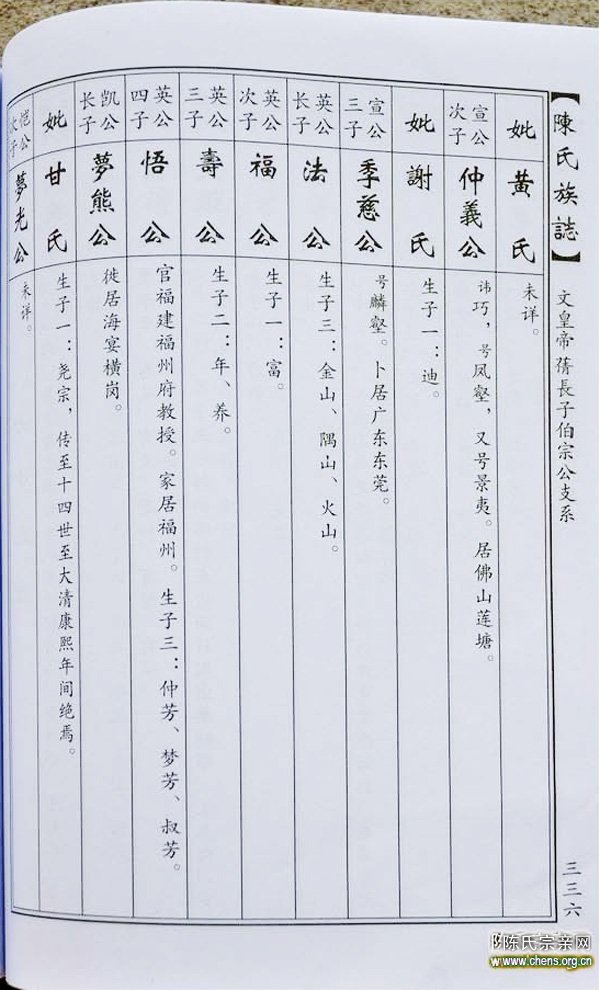 【陳氏族誌】
文皇帝蒨長子伯宗公支系
三三六
妣
黄氏
未详。
宣公次子
仲義公
讳巧，号凤壑，又号景夷。居佛山莲塘。
妣
謝氏
生子一：迪。
宣公三子
季慈公
号麟壑。卜居广东东莞。
英公长子
法公
生子三：金山、隅山、火山。
英公次子
福公
生子一：富。
英公三子
壽公
生子二：年、养。
英公四子
悟公
官福建福州府教授。家居福州。生子三：仲芳、梦芳、叔芳。
凯公长子
夢熊公
徙居海宴横岗。
妣
甘氏
生子一：尧宗，传至十四世至大清康熙年间绝焉。
恺公次子
夢光公
未详。
陈氏宗亲网
www.chens.org.cn